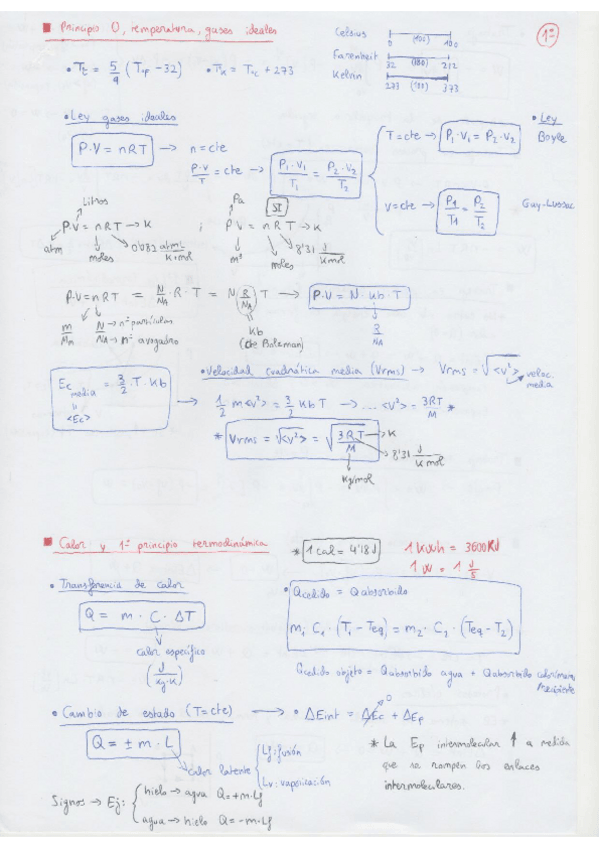 ■ Principio 0, temperatura, gases ideales
1º
Celsius 0 (100) 100
Farenheit 32 (180) 212
Kelvin 273 (100) 373
• Tc = 5/9 (T°F - 32) • Tk = T°c + 273
• Ley gases ideales
P·V = nRT → n = cte
P·V/T = cte → P1·V1/T1 = P2·V2/T2
T = cte → P1·V1 = P2·V2
• Ley Boyle
V = cte → P1/T1 = P2/T2
Gay-Lussac
Litros
P·V = nRT → K
atm moles 0'082 atm·L/K·mol
Pa SI
P·V = nRT → K
m³ moles 8'31 J/K·mol
P·V = nRT = N/NA · R · T = N (R/NA) T → P·V = N · Kb · T
m/Mm N/NA → nº partículas → nº avogadro
Kb (cte Bolzman)
R/NA
• Velocidad cuadrática media (Vrms) → Vrms = √<v²> veloc. media
Ec media = 3/2 · T · Kb
<Ec>
1/2 m<v²> = 3/2 Kb T → ... <v²> = 3RT/M *
* Vrms = √<v²> = √3RT/M → K
8'31 J/K mol
Kg/mol
■ Calor y 1er principio termodinámica
* 1 cal = 4'18 J
1 kwh = 3600 KJ
1 W = 1 J/s
• Transferencia de calor
Q = m · C · ΔT
calor específico
(J/Kg·K)
• Qcedido = Qabsorbido
m1 C1 · (T1 - Teq) = m2 · C2 · (Teq - T2)
Qcedido objeto = Qabsorbido agua + Qabsorbido calorímetro
Recipiente
• Cambio de estado (T = cte) → • ΔEint = ΔEc + ΔEp
0
Q = ± m · L
calor latente
Lf: fusión
Lv: vaporización
* La Ep intermolecular ↑ a medida
que se rompen los enlaces
intermoleculares.
Signos → Ej:
hielo → agua Q = +m·Lf
agua → hielo Q = -m·Lf